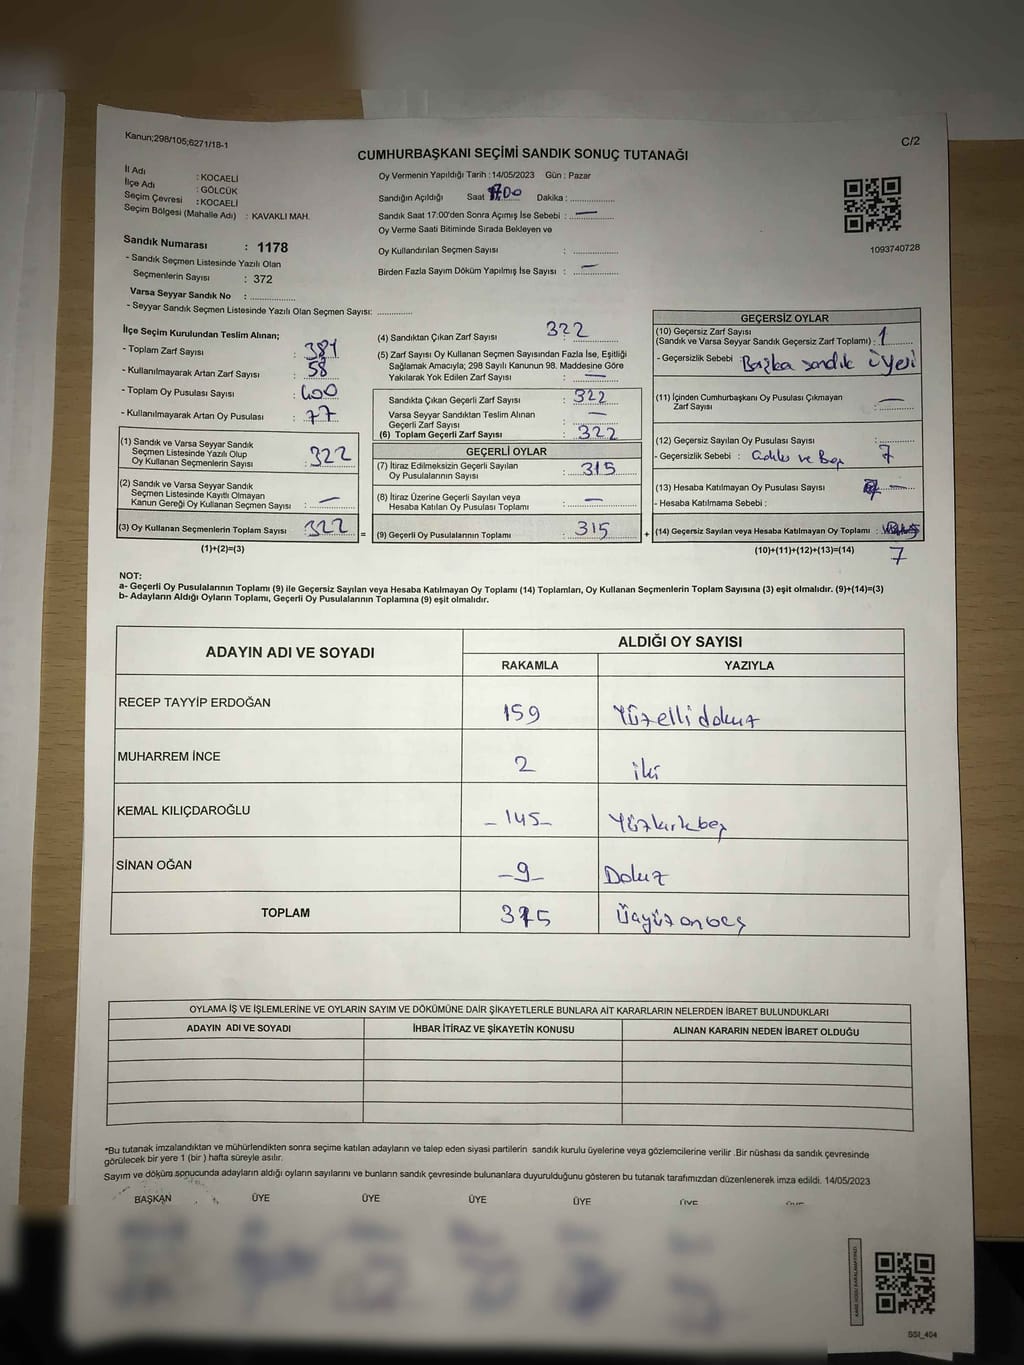 Kanun;298/105;6271/18-1
C/2
CUMHURBAŞKANI SEÇİMİ SANDIK SONUÇ TUTANAĞI
İl Adı : KOCAELİ
İlçe Adı : GÖLCÜK
Seçim Çevresi : KOCAELİ
Seçim Bölgesi (Mahalle Adı) : KAVAKLI MAH.
Sandık Numarası : 1178
- Sandık Seçmen Listesinde Yazılı Olan
Seçmenlerin Sayısı : 372
Varsa Seyyar Sandık No : ..............
- Seyyar Sandık Seçmen Listesinde Yazılı Olan Seçmen Sayısı: ............
Oy Vermenin Yapıldığı Tarih : 14/05/2023 Gün : Pazar
Sandığın Açıldığı Saat 17.00 Dakika : ..............
Sandık Saat 17:00'den Sonra Açımış İse Sebebi : —
Oy Verme Saati Bitiminde Sırada Bekleyen ve
Oy Kullandırılan Seçmen Sayısı : ..............
Birden Fazla Sayım Döküm Yapılmış İse Sayısı : —
1093740728
İlçe Seçim Kurulundan Teslim Alınan;
- Toplam Zarf Sayısı :
- Kullanılmayarak Artan Zarf Sayısı : 58
- Toplam Oy Pusulası Sayısı : 400
- Kullanılmayarak Artan Oy Pusulası : 77
(1) Sandık ve Varsa Seyyar Sandık
Seçmen Listesinde Yazılı Olup
Oy Kullanan Seçmenlerin Sayısı : 322
(2) Sandık ve Varsa Seyyar Sandık
Seçmen Listesinde Kayıtlı Olmayan
Kanun Gereği Oy Kullanan Seçmen Sayısı : —
(3) Oy Kullanan Seçmenlerin Toplam Sayısı : 322
(1)+(2)=(3)
=
(4) Sandıktan Çıkan Zarf Sayısı : 322
(5) Zarf Sayısı Oy Kullanan Seçmen Sayısından Fazla İse, Eşitliği
Sağlamak Amacıyla; 298 Sayılı Kanunun 98. Maddesine Göre
Yakılarak Yok Edilen Zarf Sayısı : —
Sandıkta Çıkan Geçerli Zarf Sayısı : 322
Varsa Seyyar Sandıktan Teslim Alınan
Geçerli Zarf Sayısı : —
(6) Toplam Geçerli Zarf Sayısı : 322
GEÇERLİ OYLAR
(7) İtiraz Edilmeksizin Geçerli Sayılan
Oy Pusulalarının Sayısı : 315
(8) İtiraz Üzerine Geçerli Sayılan veya
Hesaba Katılan Oy Pusulası Toplamı : —
(9) Geçerli Oy Pusulalarının Toplamı : 315
+
GEÇERSİZ OYLAR
(10) Geçersiz Zarf Sayısı
(Sandık ve Varsa Seyyar Sandık Geçersiz Zarf Toplamı) : 1
- Geçersizlik Sebebi : Başka sandık üyesi
(11) İçinden Cumhurbaşkanı Oy Pusulası Çıkmayan
Zarf Sayısı : —
(12) Geçersiz Sayılan Oy Pusulası Sayısı : ..............
- Geçersizlik Sebebi : ve 7
(13) Hesaba Katılmayan Oy Pusulası Sayısı : —
- Hesaba Katılmama Sebebi :
(14) Geçersiz Sayılan veya Hesaba Katılmayan Oy Toplamı :
(10)+(11)+(12)+(13)=(14)
7
NOT:
a- Geçerli Oy Pusulalarının Toplamı (9) ile Geçersiz Sayılan veya Hesaba Katılmayan Oy Toplamı (14) Toplamları, Oy Kullanan Seçmenlerin Toplam Sayısına (3) eşit olmalıdır. (9)+(14)=(3)
b- Adayların Aldığı Oyların Toplamı, Geçerli Oy Pusulalarının Toplamına (9) eşit olmalıdır.
ADAYIN ADI VE SOYADI
ALDIĞI OY SAYISI
RAKAMLA YAZIYLA
RECEP TAYYİP ERDOĞAN 159 Yüzelli dokuz
MUHARREM İNCE 2 iki
KEMAL KILIÇDAROĞLU - 145 - Yüzkırkbeş
SİNAN OĞAN - 9 - Dokuz
TOPLAM 315 Üçyüz onbeş
OYLAMA İŞ VE İŞLEMLERİNE VE OYLARIN SAYIM VE DÖKÜMÜNE DAİR ŞİKAYETLERLE BUNLARA AİT KARARLARIN NELERDEN İBARET BULUNDUKLARI
ADAYIN ADI VE SOYADI İHBAR İTİRAZ VE ŞİKAYETİN KONUSU ALINAN KARARIN NEDEN İBARET OLDUĞU
*Bu tutanak imzalandıktan ve mühürlendikten sonra seçime katılan adayların ve talep eden siyasi partilerin sandık kurulu üyelerine veya gözlemcilerine verilir .Bir nüshası da sandık çevresinde
görülecek bir yere 1 (bir ) hafta süreyle asılır.
Sayım ve döküm sonucunda adayların aldığı oyların sayılarını ve bunların sandık çevresinde bulunanlara duyurulduğunu gösteren bu tutanak tarafımızdan düzenlenerek imza edildi. 14/05/2023
BAŞKAN ÜYE ÜYE ÜYE ÜYE ÜYE ÜYE
SSI_404